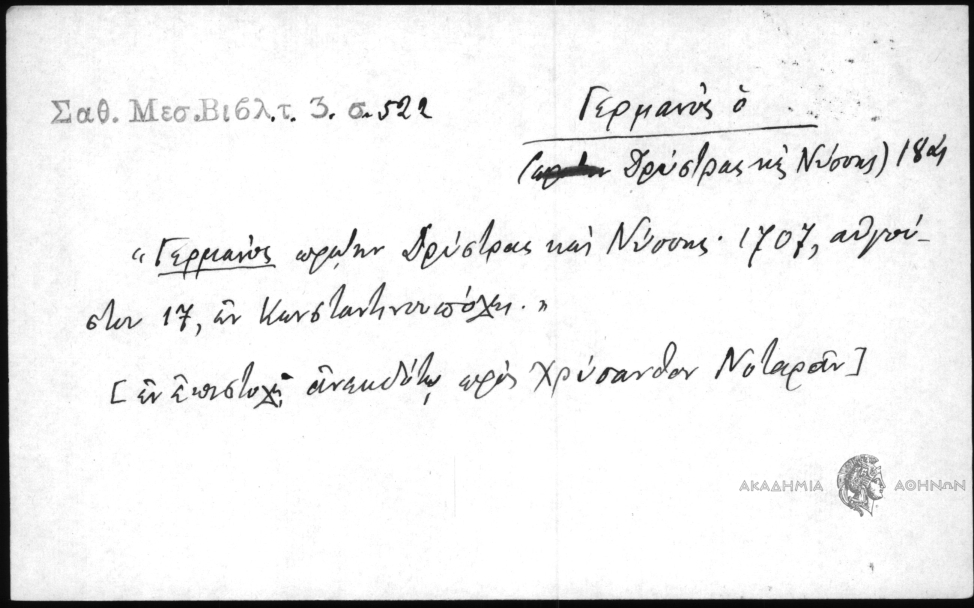 Σαθ. Μεσ. Βιβλ. τ. 3. σ. 522
Γερμανὸς ὁ
Δρύστρας κὲ Νύσσης) 18 αἰ
"Γερμανὸς πρώην Δρύστρας καὶ Νύσσης. 1707, αὐγού-
στου 17, ἐν Κωνσταντινουπόλει."
[ἐν ἐπιστολῇ ἀνεκδότῳ πρὸς Χρύσανθον Νοταρᾶν]
ΑΚΑΔΗΜΙΑ ΑΘΗΝΩΝ